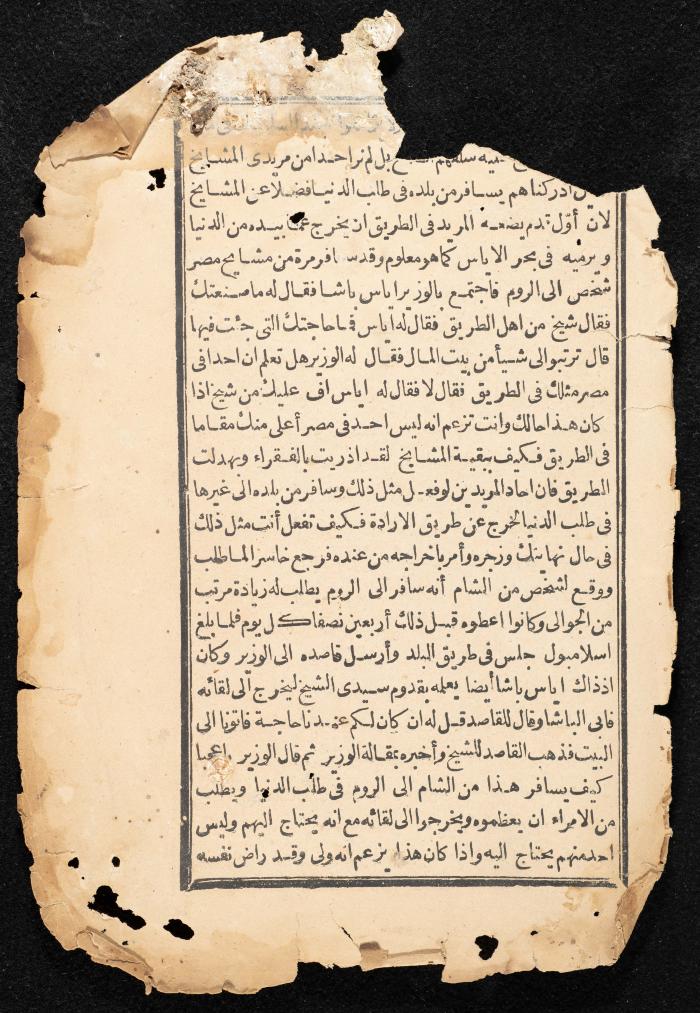 بل لم نر احدا من مريدى المشايخ
ادركناهم يسافر من بلده فى طلب الدنيا فضلا عن المشايخ
لان أوّل قدم يضعه المريد فى الطريق ان يخرج عما بيده من الدنيا
ويرميه فى بحر الاياس كما هو معلوم وقد سافر مرة من مشايخ مصر
شخص الى الروم فاجتمع بالوزير اياس باشا فقال له ما صنعتك
فقال شيخ من اهل الطريق فقال له اياس فما حاجتك التى جئت فيها
قال ترتبوا لى شيأ من بيت المال فقال له الوزير هل تعلم ان احدا فى
مصر مثلك فى الطريق فقال لا فقال له اياس اف عليك من شيخ اذا
كان هذا حالك وانت تزعم انه ليس احد فى مصر أعلى منك مقاما
فى الطريق فكيف ببقية المشايخ لقد اذريت بالفقراء وبهدلت
الطريق فان احاد المريدين لو فعل مثل ذلك وسافر من بلده الى غيرها
فى طلب الدنيا لخرج عن طريق الارادة فكيف تفعل أنت مثل ذلك
فى حال نهايتك وزجره وأمر باخراجه من عنده فرجع خاسرا لما طلب
ووقع لشخص من الشام أنه سافر الى الروم يطلب له زيادة مرتب
من الجوالى وكانوا اعطوه قبل ذلك أربعين نصفا كل يوم فلما بلغ
اسلامبول جلس فى طريق البلد وأرسل قاصده الى الوزير وكان
اذ ذاك اياس باشا أيضا يعلمه بقدوم سيدى الشيخ ليخرج الى لقائه
فابى الباشا وقال للقاصد قل له ان كان لكم عندنا حاجة فاتونا الى
البيت فذهب القاصد للشيخ وأخبره بمقالة الوزير ثم قال الوزير واعجبا
كيف يسافر هذا من الشام الى الروم فى طلب الدنيا ويطلب
من الامراء ان يعظموه ويخرجوا الى لقائه مع انه يحتاج اليهم وليس
احد منهم يحتاج اليه واذا كان هذا يزعم انه ولى وقد راض نفسه